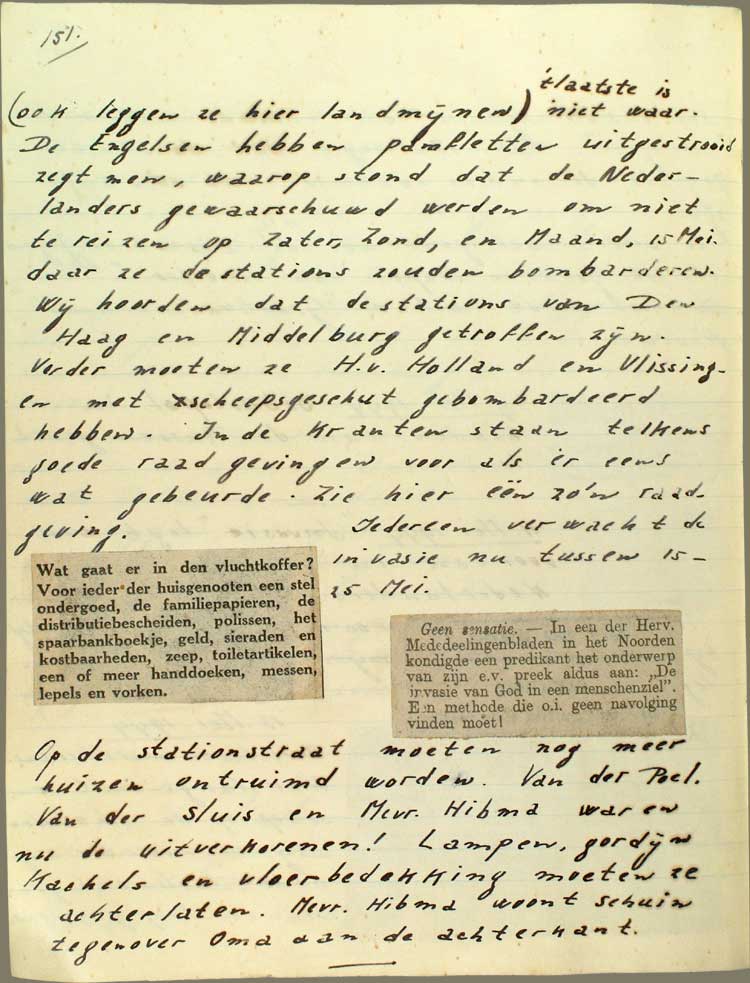 151.
't laatste is
(ook leggen ze hier landmijnen) niet waar.
De Engelsen hebben pamfletten uitgestrooid
zegt men, waarop stond dat de Neder-
landers gewaarschuwd werden om niet
te reizen op Zater, Zond, en Maand, 15 Mei.
daar ze de stations zouden bombarderen.
Wij hoorden dat de stations van Den
Haag en Middelburg getroffen zijn.
Verder moeten ze H.v. Holland en Vlissing-
en met scheepsgeschut gebombardeerd
hebben. In de kranten staan telkens
goede raadgevingen voor als er eens
wat gebeurde. Zie hier één zo'n raad-
geving.
Iedereen verwacht de
invasie nu tussen 15-
25 Mei.
Wat gaat er in den vluchtkoffer?
Voor ieder der huisgenooten een stel
ondergoed, de familiepapieren, de
distributiebescheiden, polissen, het
spaarbankboekje, geld, sieraden en
kostbaarheden, zeep, toiletartikelen,
een of meer handdoeken, messen,
lepels en vorken.
Geen sensatie. — In een der Herv.
Mededeelingenbladen in het Noorden
kondigde een predikant het onderwerp
van zijn e.v. preek aldus aan: „De
invasie van God in een menschenziel”.
Een methode die o.i. geen navolging
vinden moet!
Op de stationstraat moeten nog meer
huizen ontruimd worden. Van der Poel.
Van der Sluis en Mevr. Hibma waren
nu de uitverkorenen! Lampen, gordijn
Kachels en vloerbedekking moeten ze
achterlaten. Mevr. Hibma woont schuin
tegenover Oma aan de achterkant.